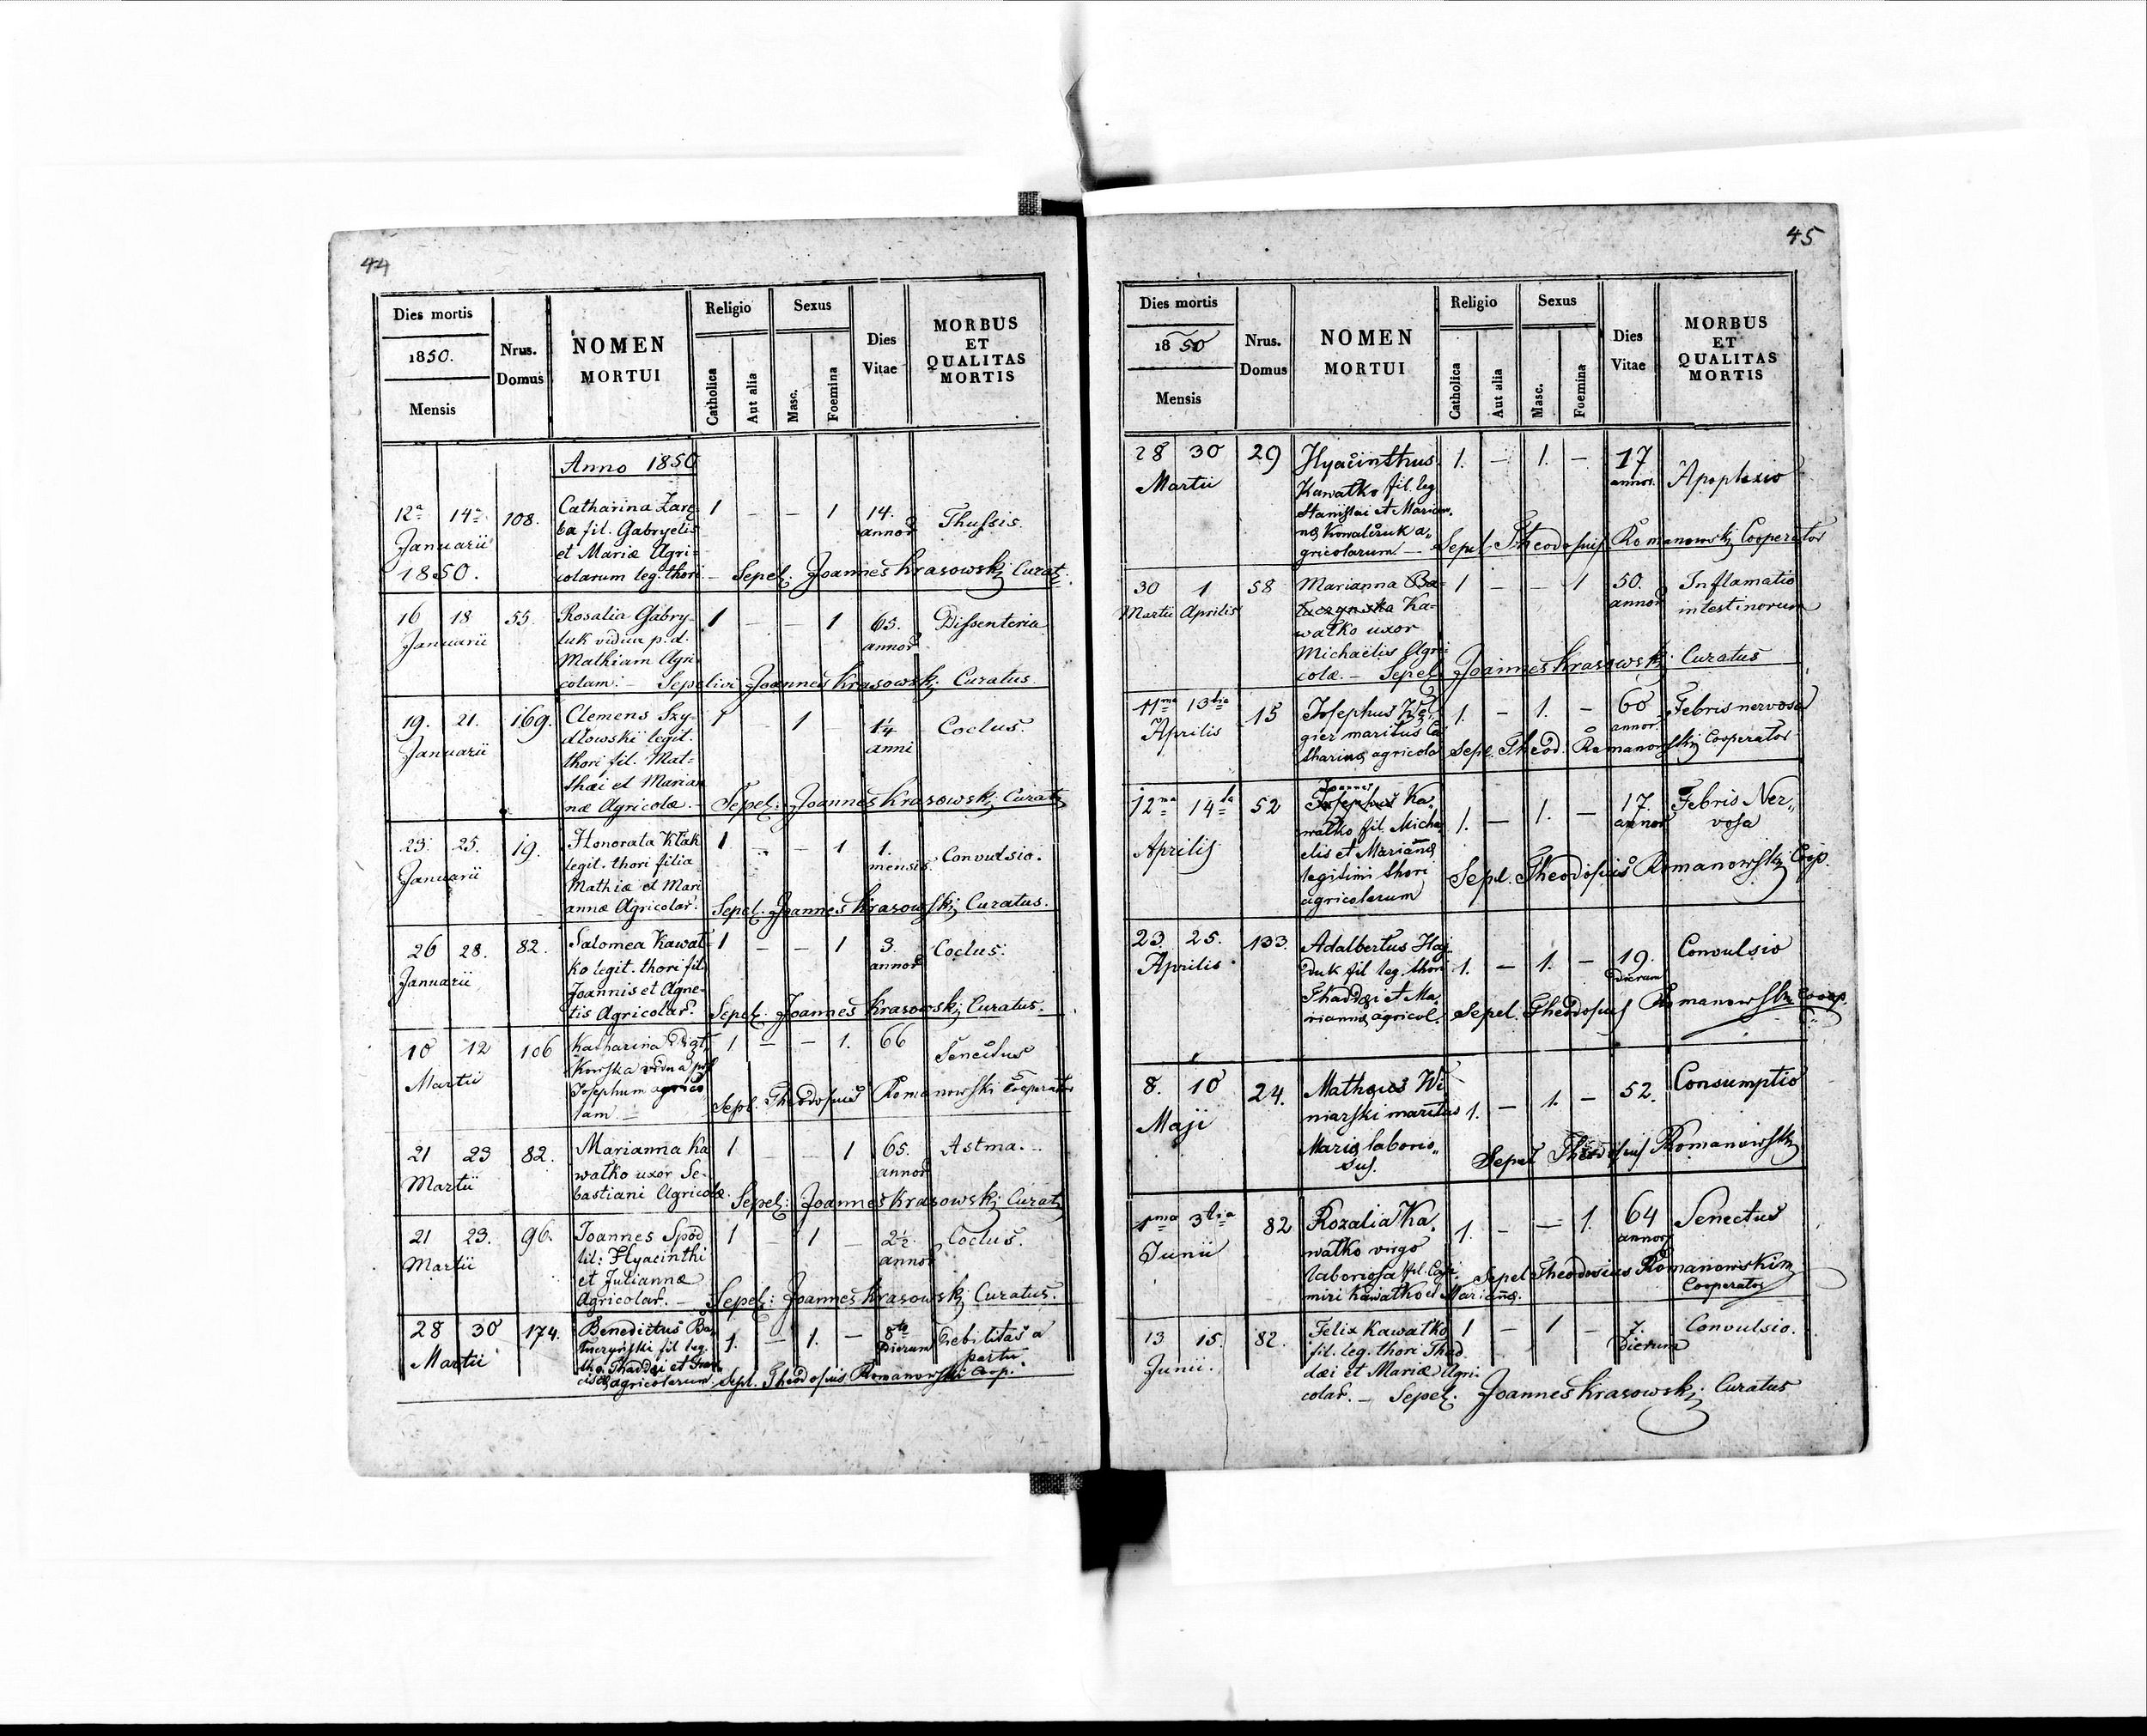 44
Dies mortis
1850.
Mensis
Nrus.
Domus
NOMEN
MORTUI
Religio
Catholica
Aut alia
Sexus
Masc.
Foemina
Dies
Vitae
MORBUS
ET
QUALITAS
MORTIS
Anno 1850
12a 14a 108. Catharina Zarę 1 – – 1 14. Thussis.
Januarii ba fil. Gabryelis annor
et Mariæ Agri-
1850. colarum leg. thori – Sepel: Joannes Krasowski Curat:
16 18 55. Rosalia Gabry- 1 – – 1 65. Dissenteria
Januarii luk vidua p. d. annor
Mathiam Agri-
colam. – Sepelivi Joannes Krasowski Curatus.
19. 21. 169. Clemens Szy- 1 – 1 – 1¼ Coclus.
Januarii dłowski legit. anni
thori fil. Mat-
thæi et Marian
næ Agricolæ. – Sepel: Joannes Krasowski Curat:
23. 25. 19. Honorata Kłak 1 – – 1 1. Convulsio.
Januarii legit. thori filia mensis.
Mathiæ et Mari
annæ Agricolar. Sepel. Joannes Krasowski Curatus.
26 28. 82. Salomea Kawał- 1 – – 1 3. Coclus.
Januarii ko legit. thori fil. annor
Joannis et Agne-
tis Agricolar. Sepel. Joannes Krasowski Curatus.
10 12 106 Katharina 1 – – 1. 66 Senectus
Martii kowska vidua
Josephum agrico
lam – Sepl. Theodosius Romanowski Cooperator
21 23 82. Marianna Ka 1 – – 1 65. Astma. –
Martii wałko uxor Se- annor
bastiani Agricolæ. Sepel: Joannes Krasowski Curat:
21 23. 96. Joannes Spód 1 – 1 – 2½ Coclus.
Martii fil: Hyacinthi annor
et Juliannæ
Agricolar. – Sepel: Joannes Krasowski Curatus.
28 30 174. Benedictus Ba 1. – 1. – 8to Debilitas a
Martii łuczyński fil leg. Dierum partu
tho. Thaddæi et Fran
ciscæ agricolarum. Sepl. Theodosius Romanowski Coop.
45
Dies mortis
1850
Mensis
Nrus.
Domus
NOMEN
MORTUI
Religio
Catholica
Aut alia
Sexus
Masc.
Foemina
Dies
Vitae
MORBUS
ET
QUALITAS
MORTIS
28 30 29 Hyacinthus 1. – 1. – 17 Apoplexio
Martii Kawałko fil. leg annor.
Stanislai et Marian
næ Kowalczuk a„
gricolarum – Sepel. Theodosius Romanowski Cooperator
30 1 58 Marianna Ba- 1 – – 1 50. Inflamatio
Martii Aprilis łuczynska Ka- annor intestinorum
wałko uxor
Michaëlis Agri
colæ. – Sepel. Joannes Krasowski Curatus
11ma 13tia 15 Josephus 1. – 1. – 60 Febris nervosa
Aprilis gier maritus Ca annor.
tharinæ agricola Sepl. Theod. Romanowski Cooperator
Joannes
12ma 14ta 52 Josephus Ka„ 1. – 1. – 17. Febris Ner„
Aprilis wałko fil. Micha annor vosa
elis et Mariannæ
legitimi thori
agricolarum Sepel. Theodosius Romanowski Coop.
23. 25. 133. Adalbertus Haj 1. – 1. – 19. Convulsio
Aprilis duk fil leg. thori Dierum
Thaddæi et Ma„
riannæ agricol. Sepel. Theodosius Romanowski Coop.
8. 10 24. Matheus Wi 1. – 1. – 52. Consumptio
Maji niarski maritus
Mariæ laborio„
sus. Sepel Theodosius Romanowski
1ma 3tia 82 Rozalia Ka„ 1. – – 1. 64 Senectus
Junii wałko virgo annor
laboriosa fil. Casi Sepel Theodosius Romanowski
miri Kawałko et Mariannæ. Cooperator
13 15. 82. Felix Kawałko 1 – 1 – 7. Convulsio.
Junii. fil. leg. thori Thad dierum
dæi et Mariæ Agri-
colar. – Sepel. Joannes Krasowski Curatus